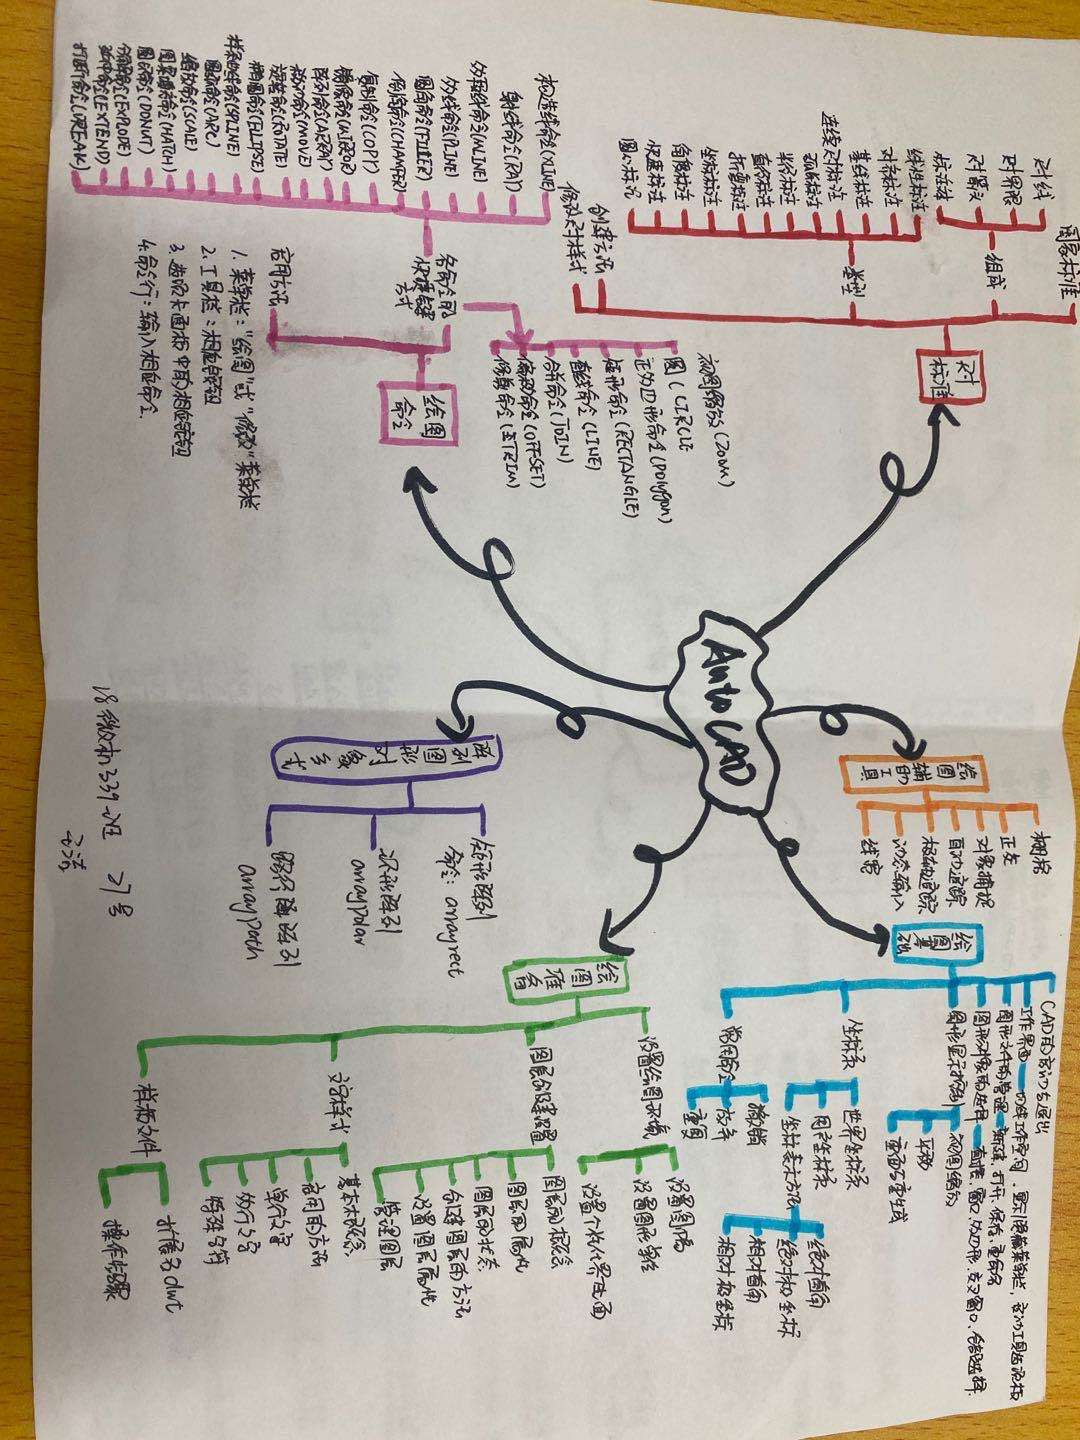 Auto CAD
尺寸
标准
国家标准
组成
尺寸线
尺寸界限
尺寸数字
类型
线性标注
对齐标注
基线标注
连续尺寸标注
弧长标注
半径标注
直径标注
折弯标注
坐标标注
角度标注
快速标注
圆心标记
创建方法
修改尺寸样式
绘图
命令
各命令的
快捷键
方式
构造线命令(XLINE)
射线命令(RAY)
多线命令(MLINE)
多线命令(PLINE)
圆角命令(FILLER)
倒角命令(CHAMFER)
复制命令(COPY)
镜像命令(MIRROR)
阵列命令(ARRAY)
移动命令(MOVE)
旋转命令(ROTATE)
椭圆命令(ELLIPSE)
样条曲线命令(SPLINE)
圆弧命令(ARC)
缩放命令(SCALE)
图案填充命令(HATCH)
圆环命令(DONUT)
分解命令(EXPLODE)
延伸命令(EXTEND)
打断命令(BREAK)
视图缩放(Zoom)
圆(CIRCLE
正多边形命令(Polygon)
矩形命令(RECTANGLE)
直线命令(LINE)
合并命令(JOIN)
偏移命令(OFFSET)
修剪命令(TRIM)
启用方法
1. 菜单栏:“绘图”或“修改”菜单栏
2. 工具栏:相应按钮
3. 选项卡面板中的相应按钮
4. 命令行:输入相应命令.
绘
图
辅
助
工
具
栅格
正交
对象捕捉
自动追踪
极轴追踪
动态输入
线宽
绘
图
基
础
CAD的启动与退出
工作界面
切换工作空间
图形文件的管理
新建.打开.保存.重命名
图形对象的选择
直接.窗口
交叉窗口.
图形显示控制
视图缩放
平移
重画与重生成
坐标系
世界坐标系
用户坐标系
坐标表示方法
绝对直角
绝对极坐标
相对直角
相对极坐标
常用命令
撤销
放弃
重复
阵列
图形
对象
方式
矩形阵列
命令:arrayrect
环形阵列
arrayPolar
路径阵列
arrayPath
绘
图
准
备
设置绘图环境
设置图幅
设置图形单位
设置个性化界面
图层创建设置
图层的概念
图层的属性
图层的状态
创建图层的方法
设置图层属性
管理图层
文字样式
基本概念
启用的方法
单行文字
多行文字
特殊字符
样板文件
扩展名dwt
操作步骤
339班 27号